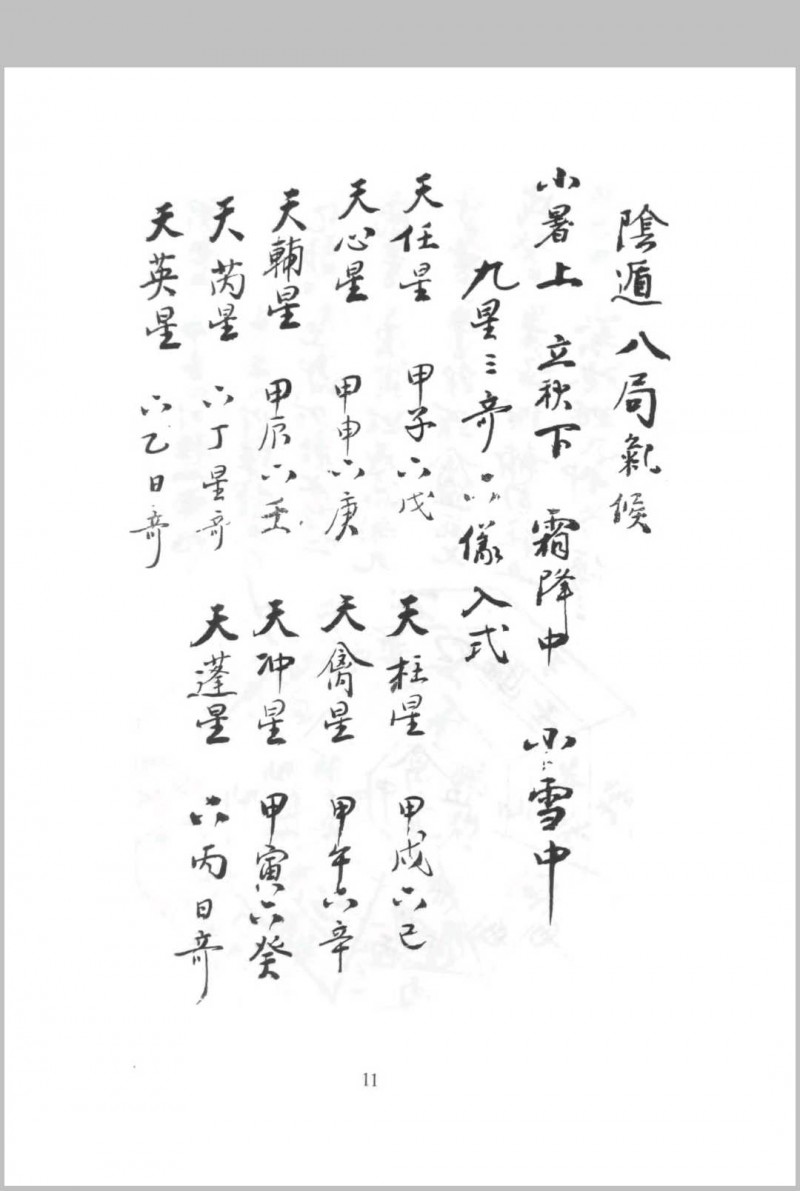 陰遁八局氣候
小暑上 立秋下 霜降中 小雪中
九星三奇六儀入式
天任星 甲子六戊 天柱星 甲戌六己
天心星 甲申六庚 天禽星 甲午六辛
天輔星 甲辰六壬 天冲星 甲寅六癸
天芮星 六丁星奇 天蓬星 六丙日奇
天英星 六乙日奇
11